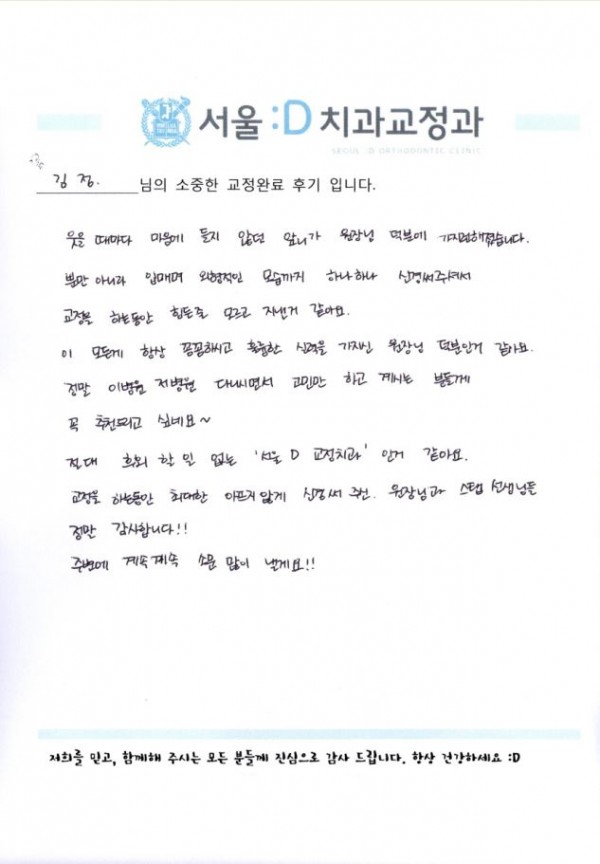 서울 :D 치과교정과
SEOUL :D ORTHODONTIC CLINIC
김 정. 님의 소중한 교정완료 후기 입니다.
웃을 때마다 마음에 들지 않던 앞니가 원장님 덕분에 가지런해졌습니다.
뿐만 아니라 입매며 외형적인 모습까지 하나하나 신경써주셔서
교정을 하는동안 힘든줄 모르고 지낸거 같아요.
이 모든게 항상 꼼꼼하시고 훌륭한 실력을 가지신 원장님 덕분인거 같아요.
정말 이병원 저병원 다니시면서 고민만 하고 계시는 분들께
꼭 추천드리고 싶네요~
절대 후회 할 일 없는 '서울 D 교정치과' 인거 같아요.
교정을 하는동안 최대한 아프지 않게 신경써 주신. 원장님과 스텝 선생님들
정말 감사합니다!!
주변에 계속계속 소문 많이 낼게요!!
저희를 믿고, 함께해 주시는 모든 분들께 진심으로 감사 드립니다. 항상 건강하세요 :D